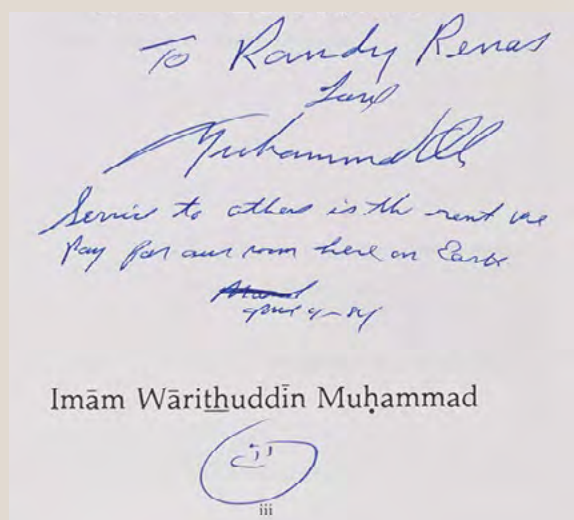 To Randy Renas
Love
Muhammad Ali
Service to others is the rent we
Pay for our room here on Earth
April 9-84
Imām Wārithuddīn Muḥammad
iii